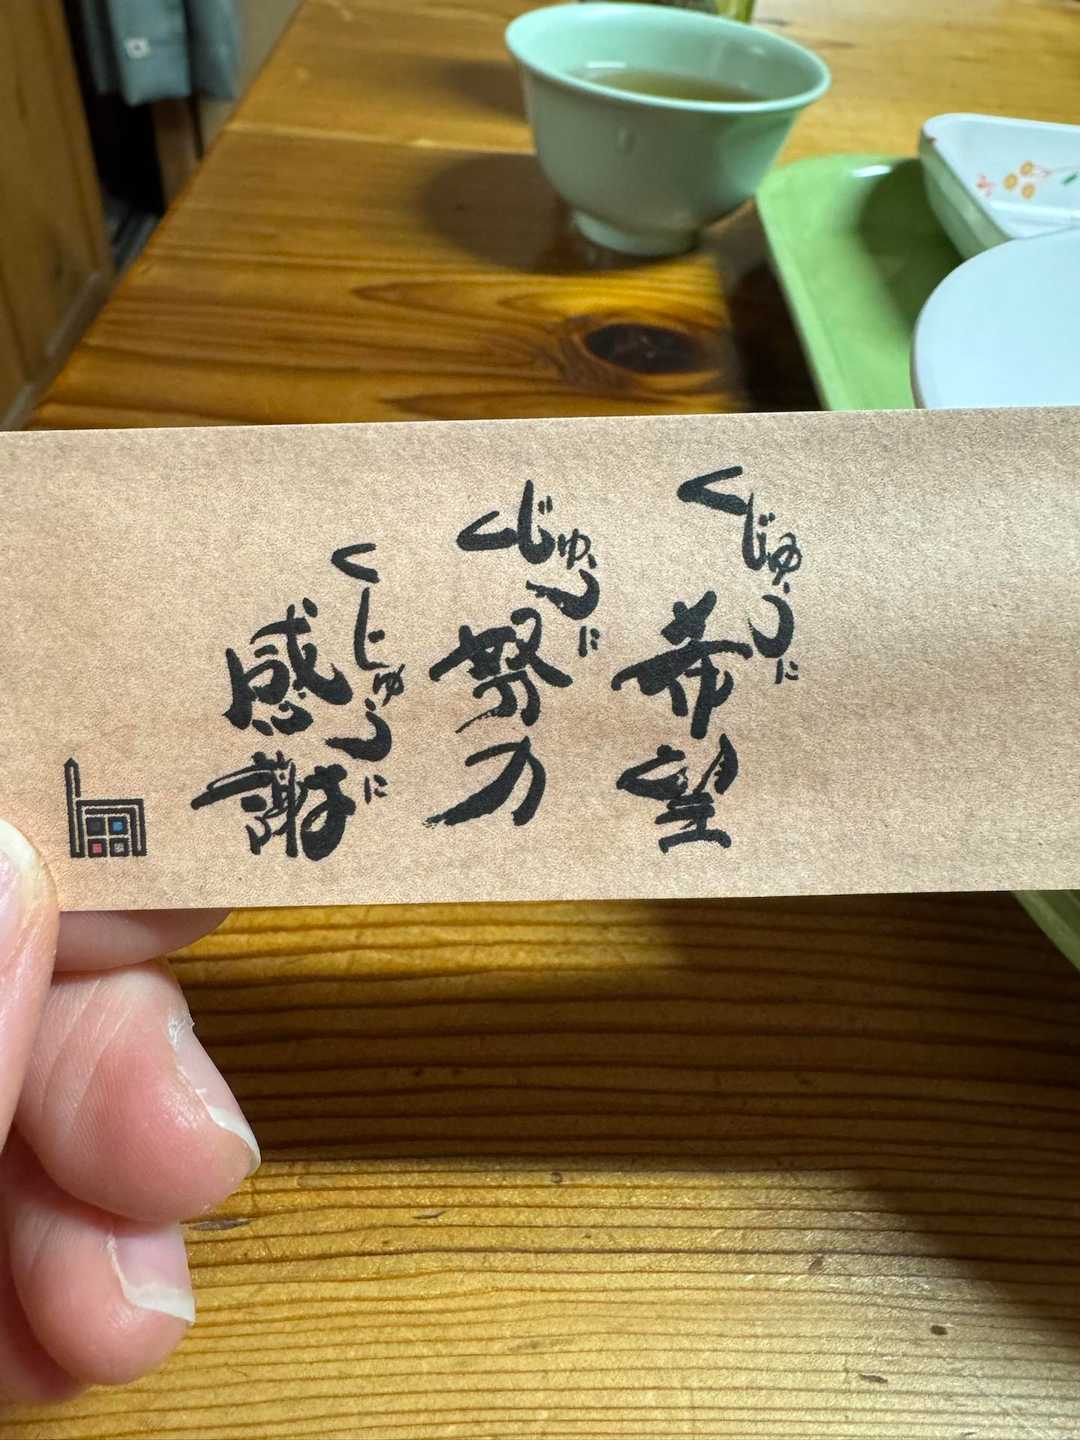 くじゅうに
希望
くじゅうに
努力
くじゅうに
感謝